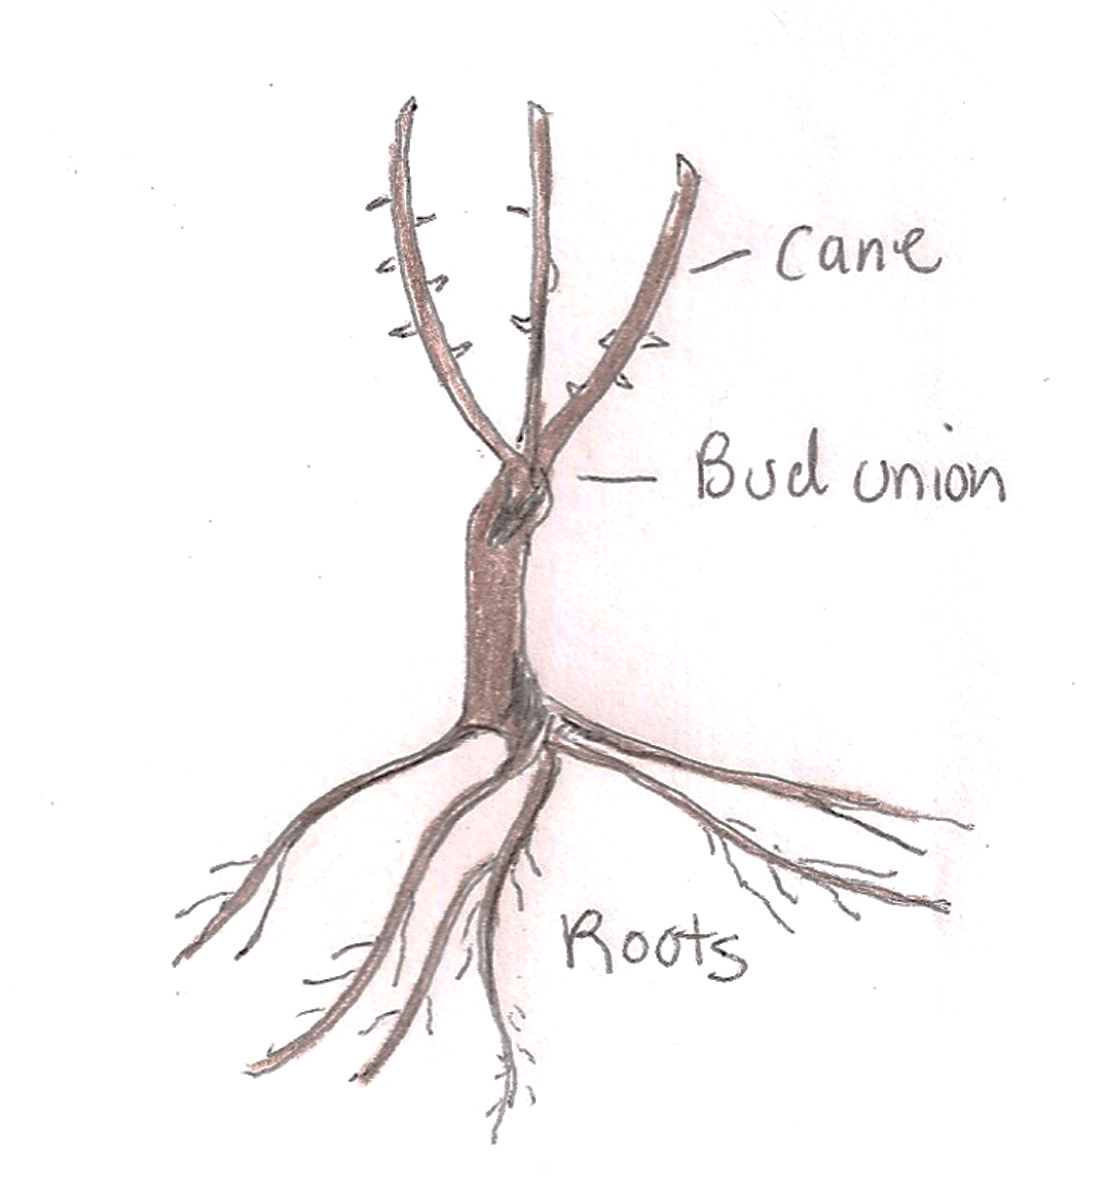 Cane
Bud union
Roots